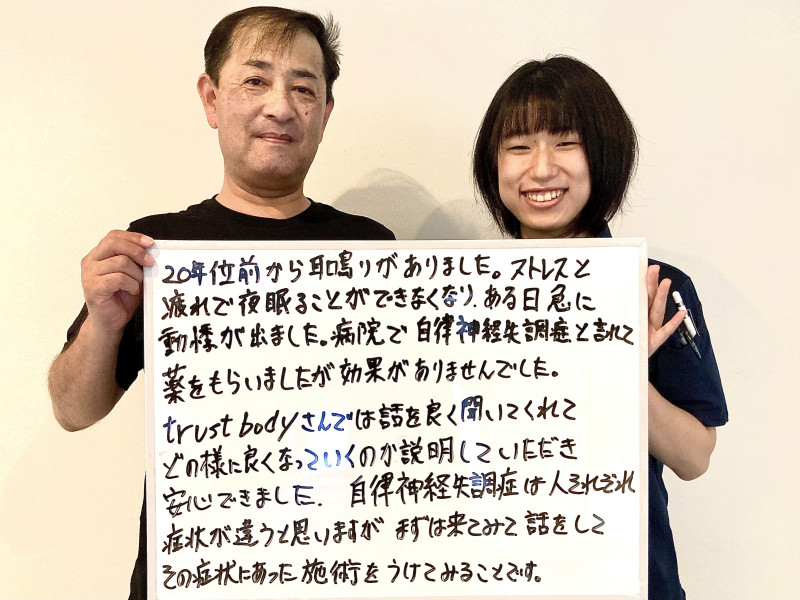 20年位前から耳鳴りがありました。ストレスと
疲れで夜眠ることができなくなり、ある日急に
動悸が出ました。病院で自律神経失調症と言れて
薬をもらいましたが効果がありませんでした。
trust bodyさんでは話を良く聞いてくれて
どの様に良くなっていくのか説明していただき
安心できました。自律神経失調症は人それぞれ
症状が違うと思いますが まずは来てみて話をして
その症状にあった施術をうけてみることです。